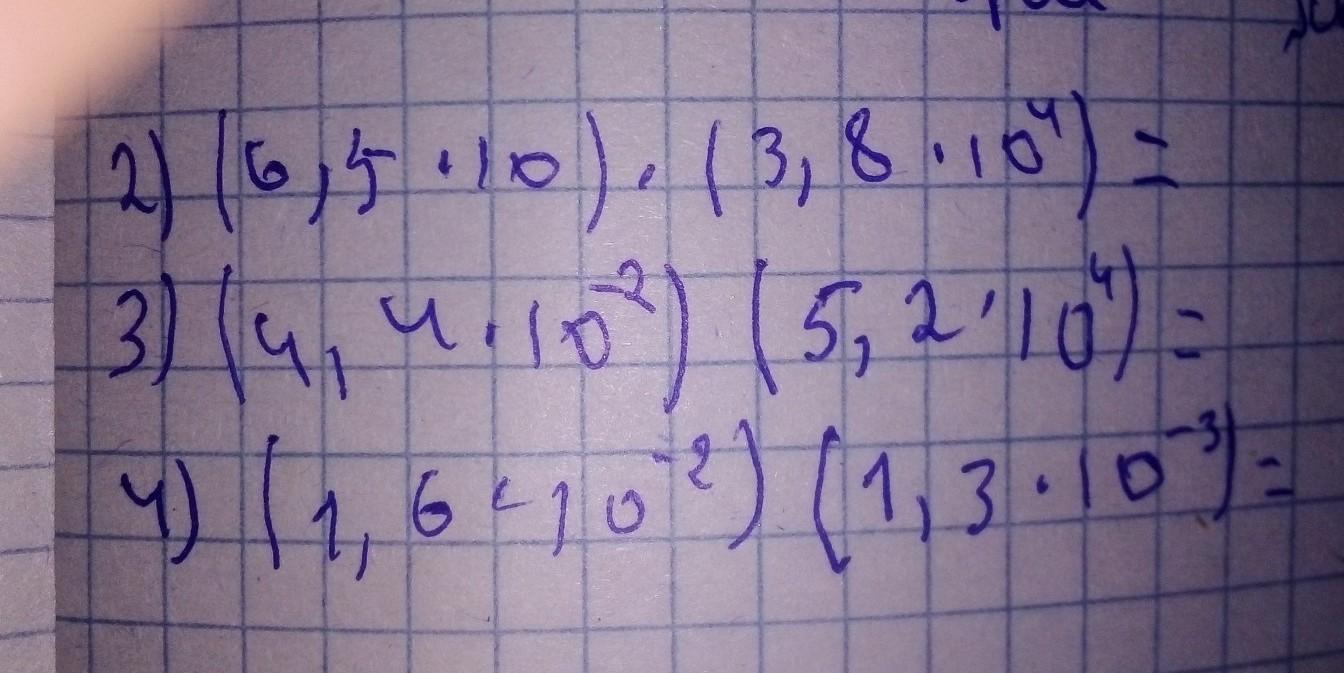 2) (6,5 · 10) · (3,8 · 10⁴) =
3) (4,4 · 10⁻²) (5,2 · 10⁴) =
4) (1,6 · 10⁻²) (1,3 · 10⁻³) =